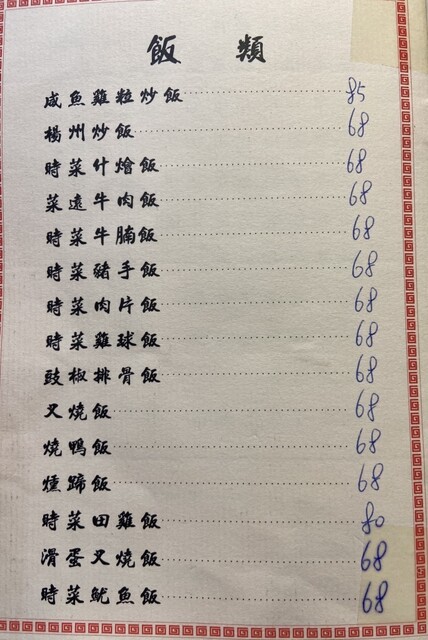 飯 類
咸魚雞粒炒飯 85
楊州炒飯 68
時菜什燴飯 68
菜遠牛肉飯 68
時菜牛腩飯 68
時菜豬手飯 68
時菜肉片飯 68
時菜雞球飯 68
豉椒排骨飯 68
叉燒飯 68
燒鴨飯 68
燻蹄飯 68
時菜田雞飯 80
滑蛋叉燒飯 68
時菜魷魚飯 68